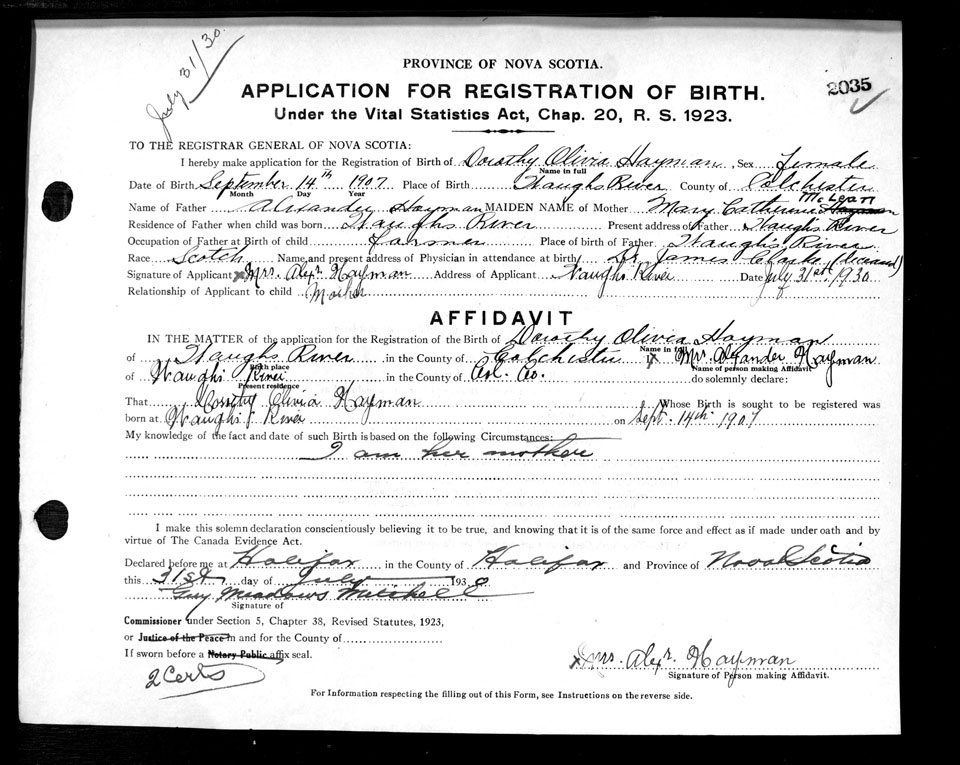 July 31/30.
PROVINCE OF NOVA SCOTIA.
2035
APPLICATION FOR REGISTRATION OF BIRTH.
Under the Vital Statistics Act, Chap. 20, R. S. 1923.
TO THE REGISTRAR GENERAL OF NOVA SCOTIA:
I hereby make application for the Registration of Birth of Dorothy Olivia Hayman, Sex female
Name in full
Date of Birth September 14th 1907 Place of Birth Waughs River County of Colchester
Month Day Year
McLean
Name of Father Alexander Hayman MAIDEN NAME of Mother Mary Catherine Hayman
Residence of Father when child was born Waughs River Present address of Father Waughs River
Occupation of Father at Birth of child Farmer Place of birth of Father Waugh's River
Race Scotch Name and present address of Physician in attendance at birth Dr. James Clarke (deceased)
Signature of Applicant x Mrs. Alexr. Hayman Address of Applicant Waughs River Date July 31st, 1930
Relationship of Applicant to child Mother
AFFIDAVIT
IN THE MATTER of the application for the Registration of the Birth of Dorothy Olivia Hayman
Name in full
of Waughs River in the County of Colchester I, x Mrs. Alexander Hayman
Birth place Name of person making Affidavit
of Waugh's River in the County of Col. Co. do solemnly declare:
Present residence
That Dorothy Olivia Hayman Whose Birth is sought to be registered was
born at Waugh's River on Sept. 14th 1907
My knowledge of the fact and date of such Birth is based on the following Circumstances:
I am her mother
I make this solemn declaration conscientiously believing it to be true, and knowing that it is of the same force and effect as if made under oath and by
virtue of The Canada Evidence Act.
Declared before me at Halifax in the County of Halifax and Province of Nova Scotia
this 31st day of July 1930
Guy Meadows Mitchell
Signature of
Commissioner under Section 5, Chapter 38, Revised Statutes, 1923,
or Justice of the Peace in and for the County of
If sworn before a Notary Public affix seal.
2 Certs
x Mrs. Alexr. Hayman
Signature of Person making Affidavit.
For Information respecting the filling out of this Form, see Instructions on the reverse side.